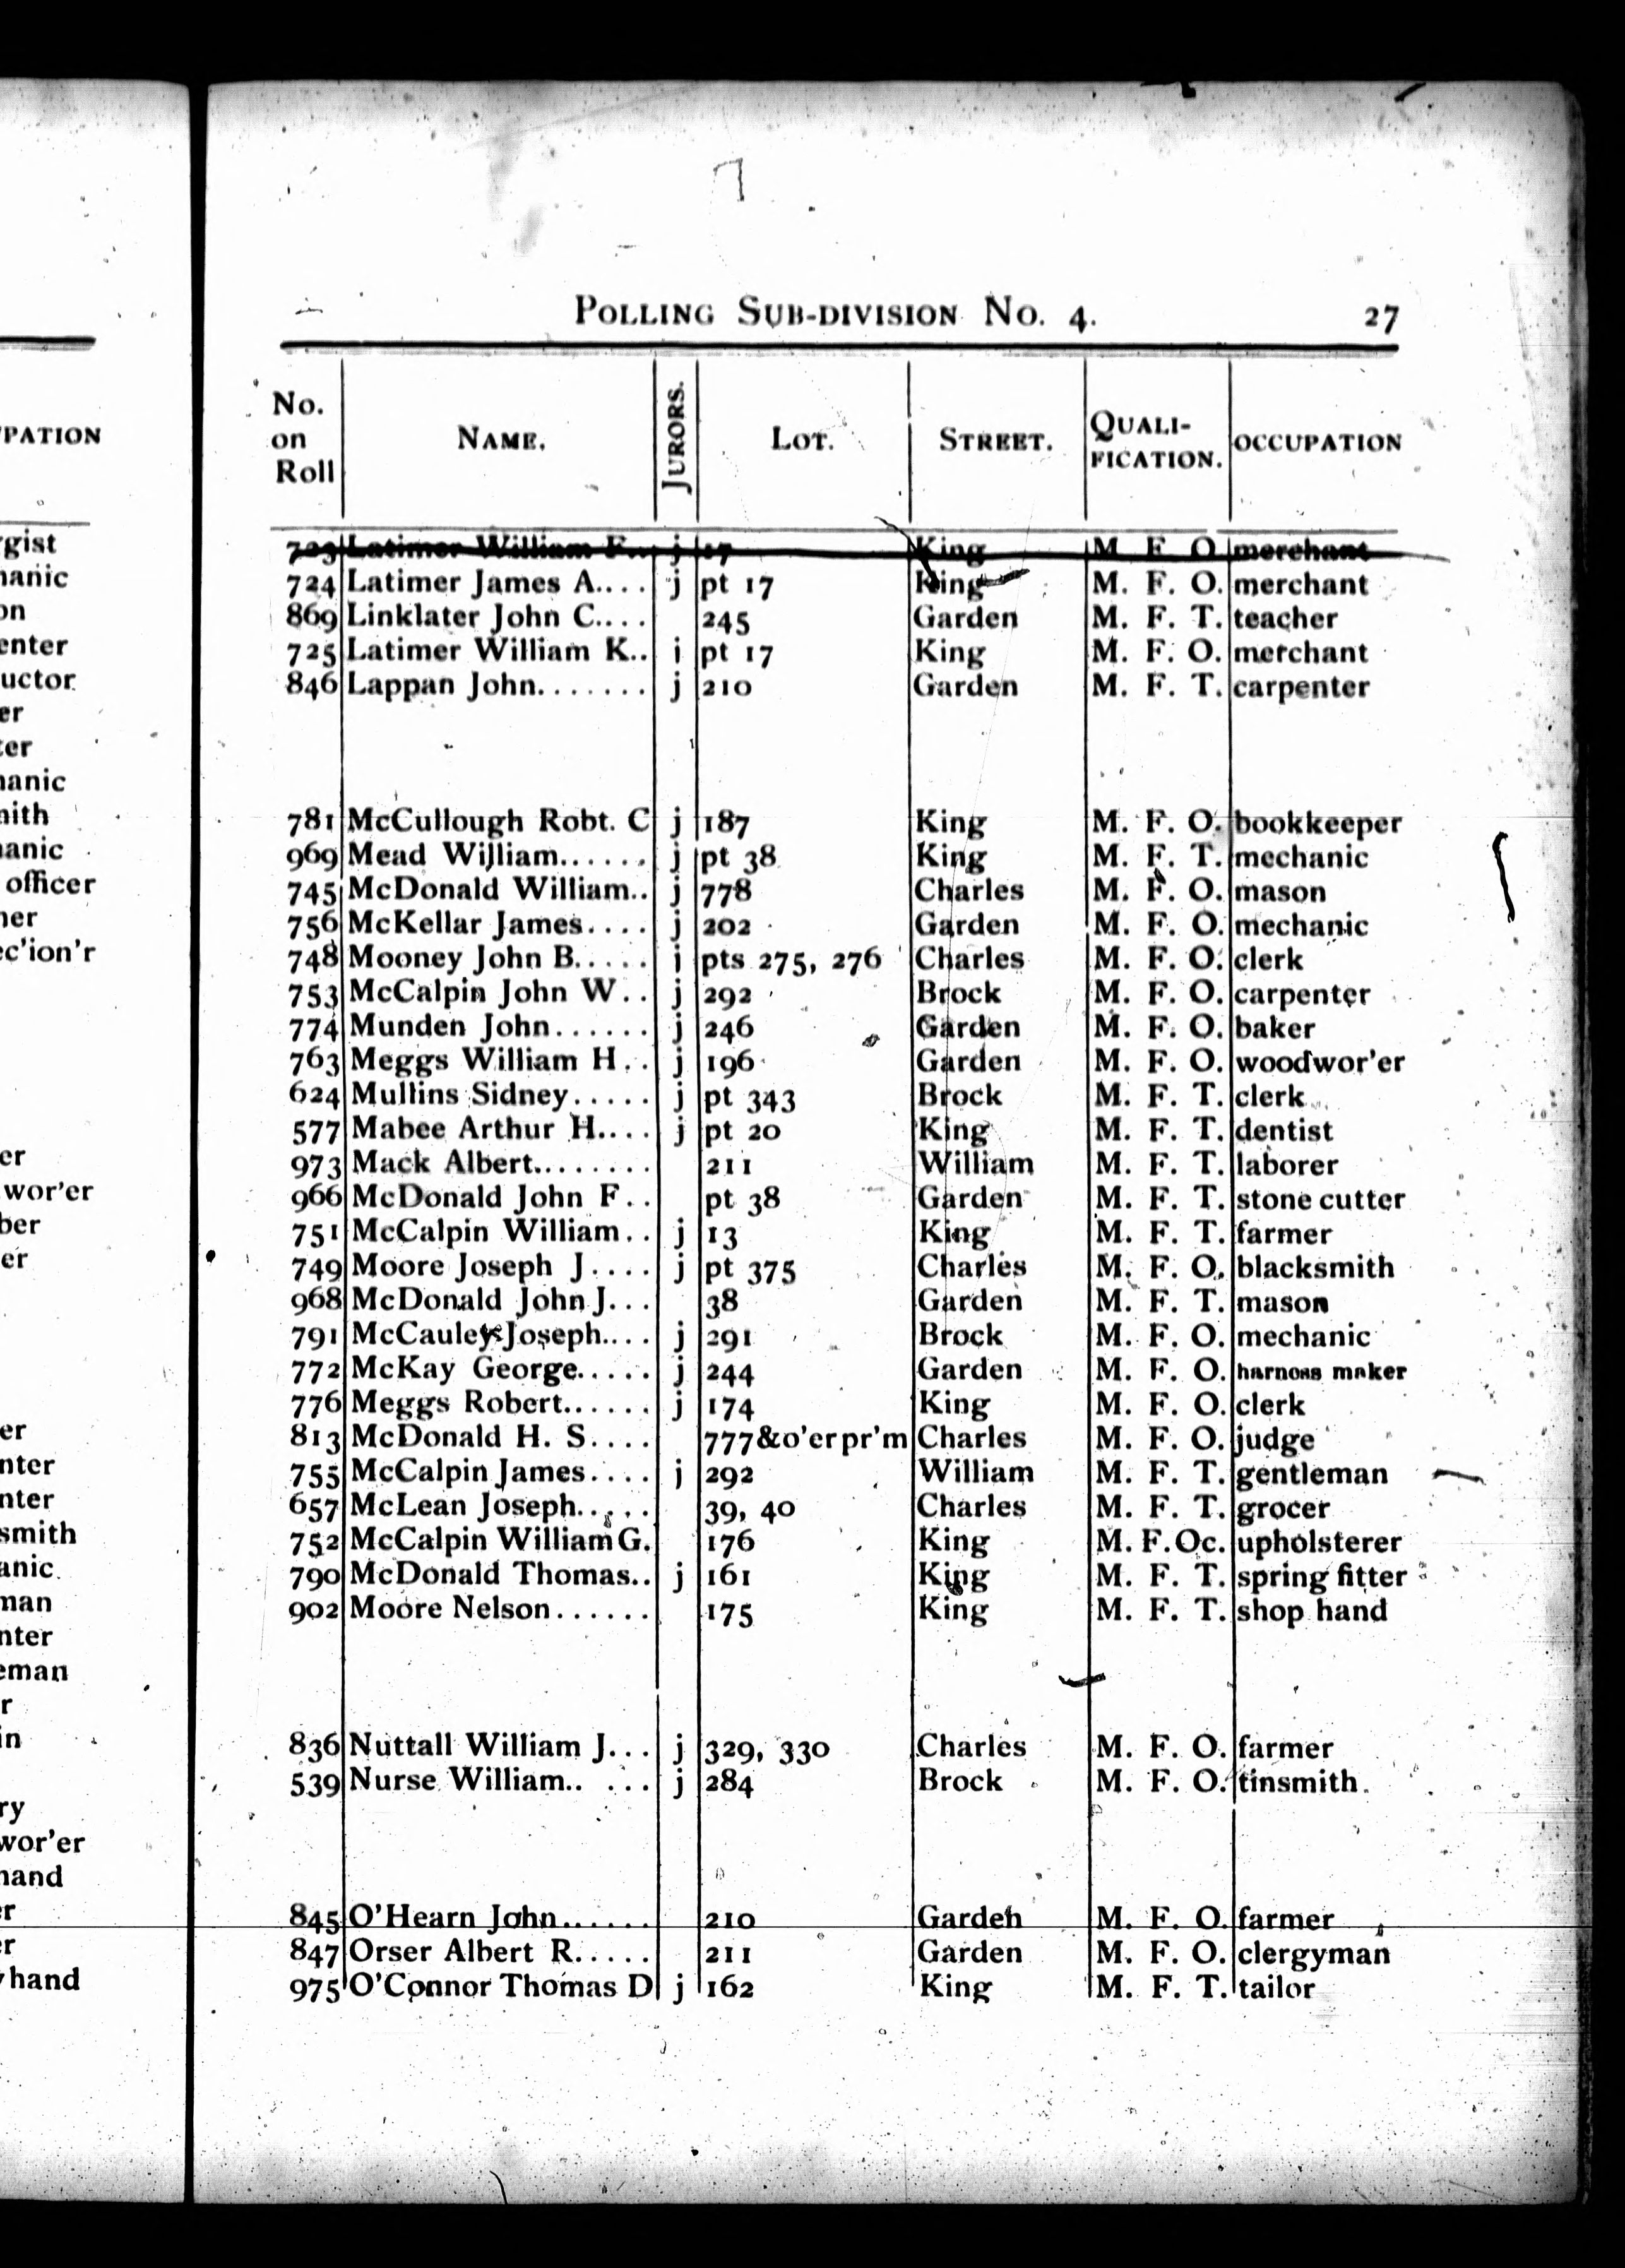 PATION
gist
anic
on
enter
uctor
er
ter
anic
nith
anic
officer
ner
ec'ion'r
er
wor'er
ber
er
er
nter
nter
smith
anic
man
nter
eman
r
in
ry
wor'er
hand
r
r
hand
POLLING SUB-DIVISION No. 4. 27
No. on Roll NAME. JURORS. LOT. STREET. QUALI-FICATION. OCCUPATION
723 Latimer William F.. j 17 King M F O merchant
724 Latimer James A.... j pt 17 King M. F. O. merchant
869 Linklater John C.... 245 Garden M. F. T. teacher
725 Latimer William K.. i pt 17 King M. F. O. merchant
846 Lappan John....... j 210 Garden M. F. T. carpenter
781 McCullough Robt. C j 187 King M. F. O. bookkeeper
969 Mead William...... j pt 38 King M. F. T. mechanic
745 McDonald William.. j 778 Charles M. F. O. mason
756 McKellar James.... j 202 Garden M. F. O. mechanic
748 Mooney John B..... i pts 275, 276 Charles M. F. O. clerk
753 McCalpin John W.. j 292 Brock M. F. O. carpenter
774 Munden John...... j 246 Garden M. F. O. baker
763 Meggs William H.. j 196 Garden M. F. O. woodwor'er
624 Mullins Sidney..... j pt 343 Brock M. F. T. clerk
577 Mabee Arthur H.... j pt 20 King M. F. T. dentist
973 Mack Albert........ 211 William M. F. T. laborer
966 McDonald John F.. pt 38 Garden M. F. T. stone cutter
751 McCalpin William.. j 13 King M. F. T. farmer
749 Moore Joseph J.... j pt 375 Charles M. F. O. blacksmith
968 McDonald John J... 38 Garden M. F. T. mason
791 McCauley Joseph.... j 291 Brock M. F. O. mechanic
772 McKay George..... j 244 Garden M. F. O. harness maker
776 Meggs Robert...... j 174 King M. F. O. clerk
813 McDonald H. S.... 777&o'er pr'm Charles M. F. O. judge
755 McCalpin James.... j 292 William M. F. T. gentleman
657 McLean Joseph..... 39, 40 Charles M. F. T. grocer
752 McCalpin William G. 176 King M. F. Oc. upholsterer
790 McDonald Thomas.. j 161 King M. F. T. spring fitter
902 Moore Nelson...... 175 King M. F. T. shop hand
836 Nuttall William J... j 329, 330 Charles M. F. O. farmer
539 Nurse William.. ... j 284 Brock M. F. O. tinsmith.
845 O'Hearn John...... 210 Garden M. F. O. farmer
847 Orser Albert R..... 211 Garden M. F. O. clergyman
975 O'Connor Thomas D j 162 King M. F. T. tailor